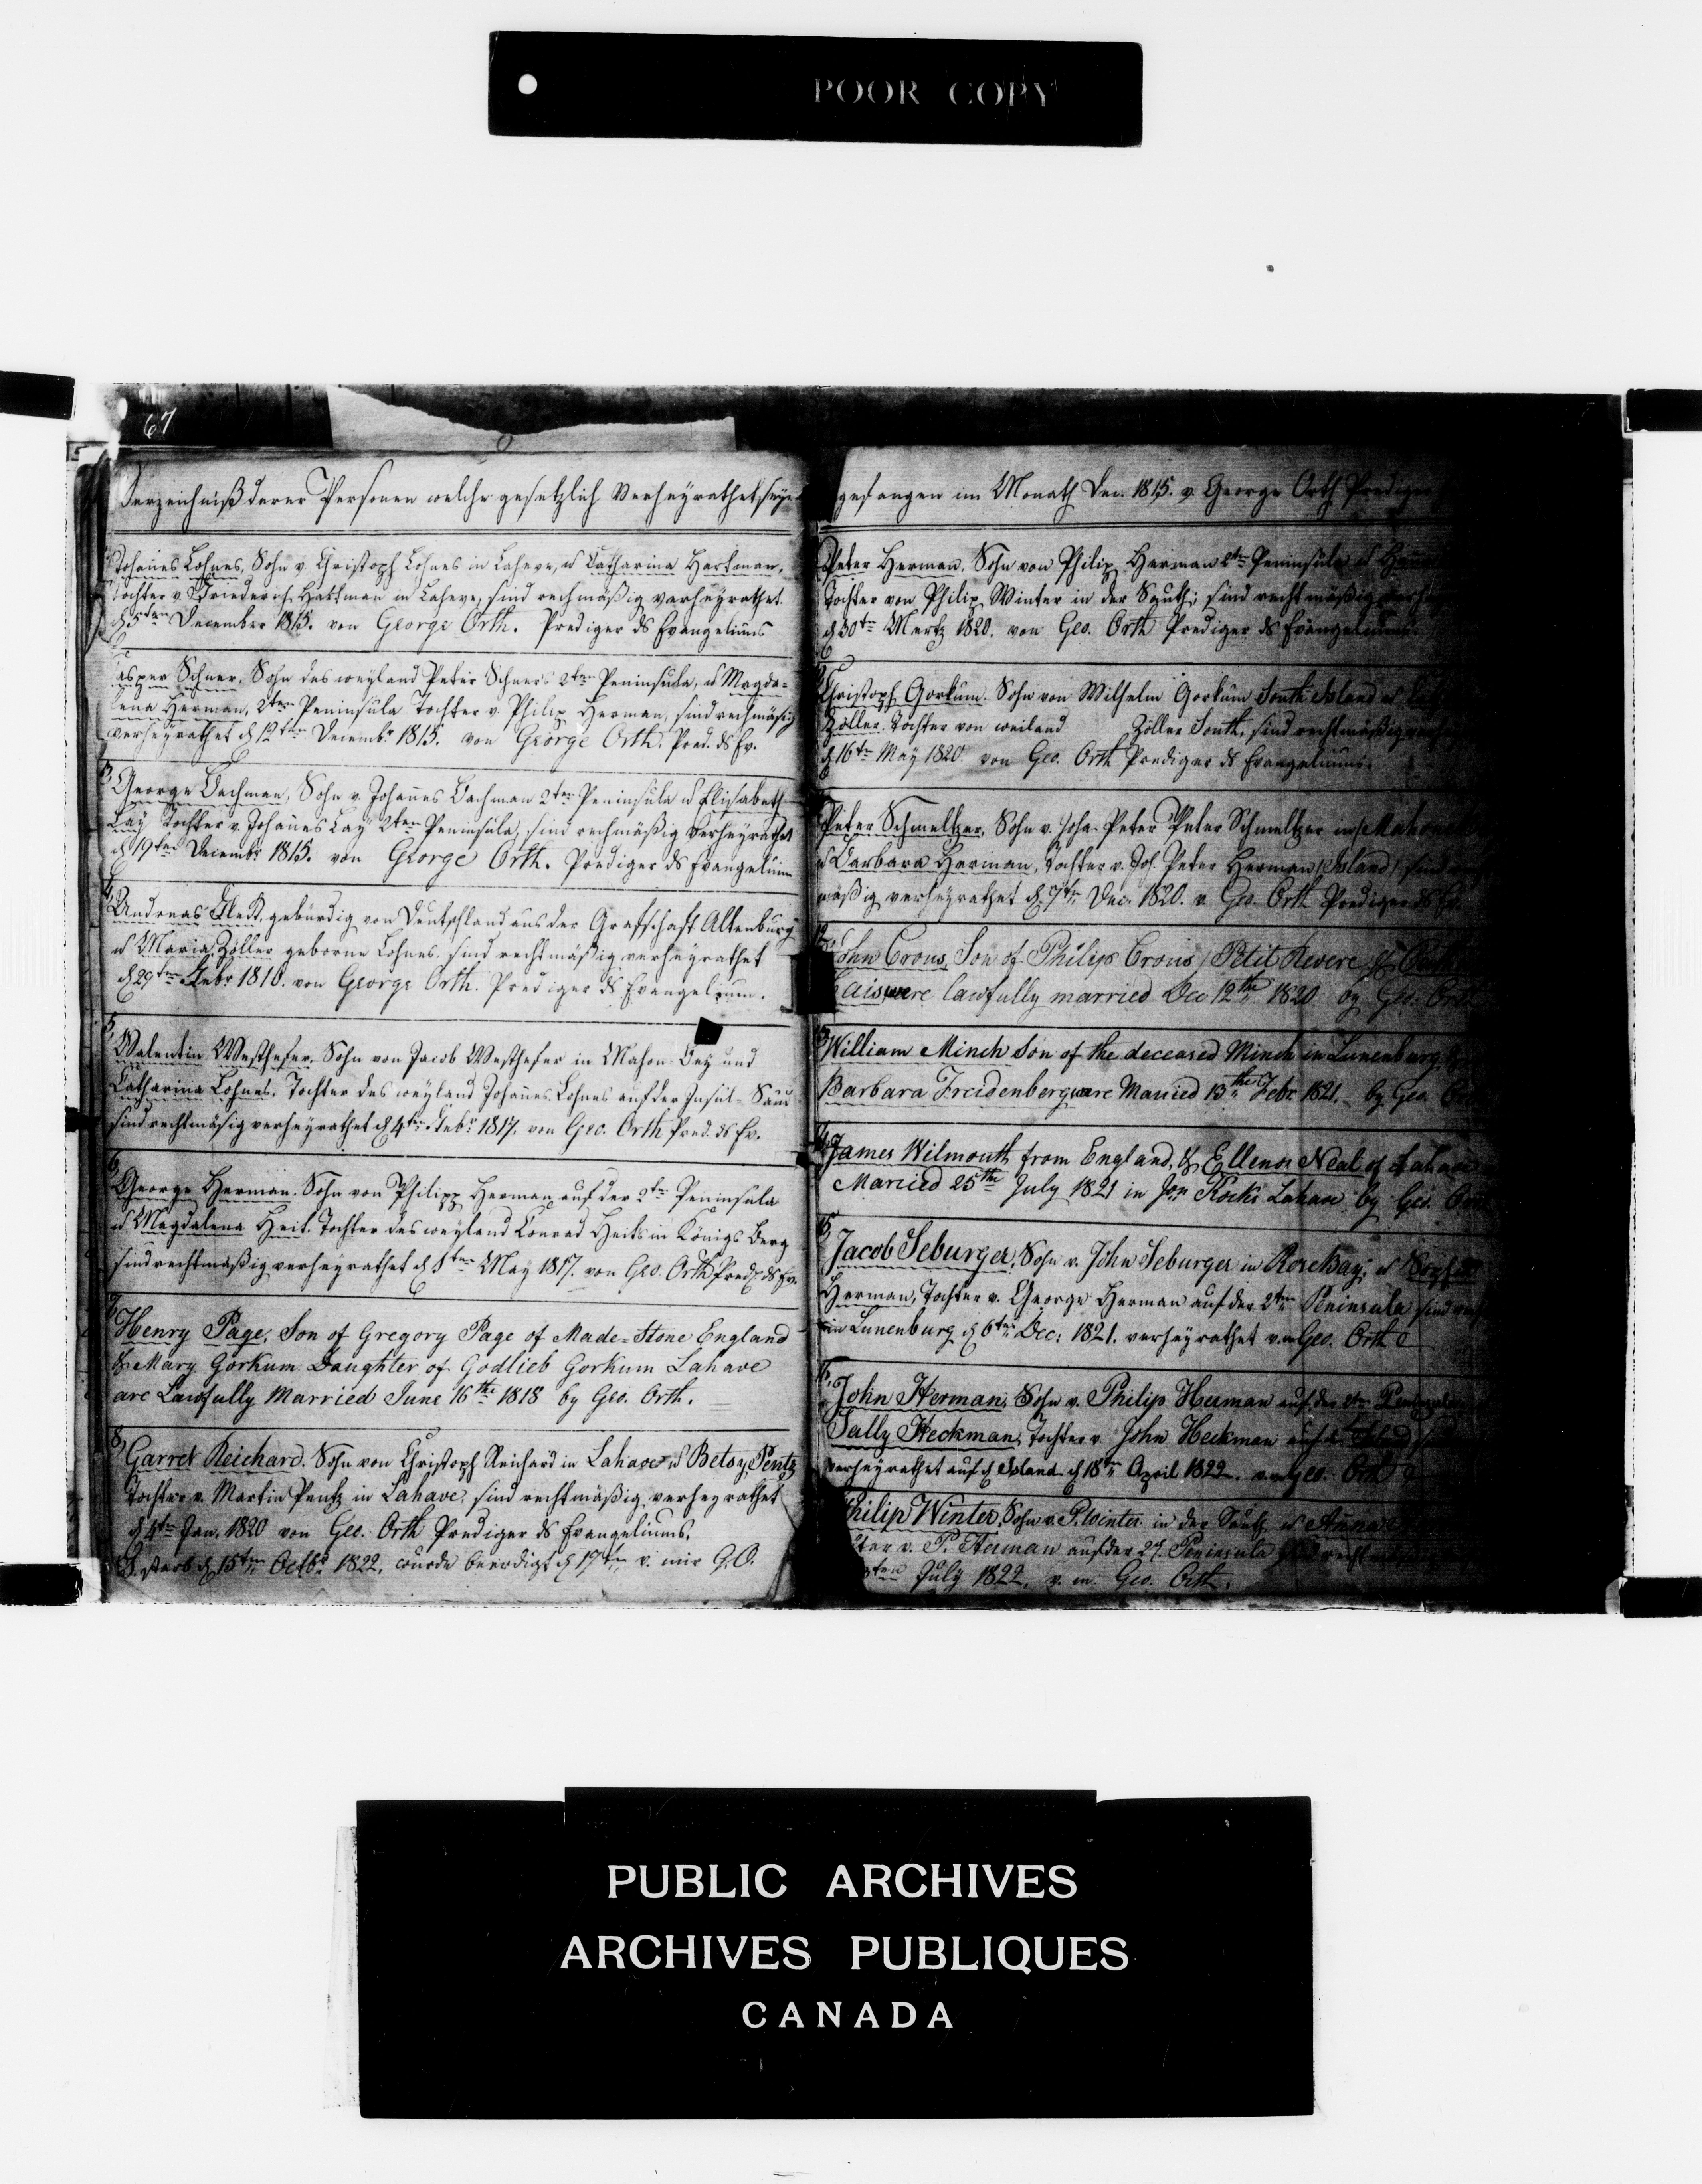 POOR COPY
67
Verzeichniß derer Personen welche gesetzlich Verheyrathet seyn
Johanes Lohnes, Sohn v. Christoph Lohnes in Laheve, u Catharina Hartman,
Tochter v. Friederich Hartman in Laheve, sind rechmäßig verheyrathet
d 5ten December 1815. von George Orth. Prediger ds Evangeliums
Casper Schner, Sohn des weyland Peter Schners 2ten Peninsula, u Magda=
lena Herman, 2ten Peninsula Tochter v. Philip Herman, sind rechmäßig
verheyrathet d 12ten Decembr 1815. von George Orth. Pred. ds Ev.
3 George Bachman, Sohn v. Johannes Bachman 2ten Peninsula u Elisabeth
Lay Tochter v. Johanes Lay 2ten Peninsula, sind rechmäßig Verheyrathet
d 19ten Decembr 1815. von George Orth. Prediger ds Evangelium
4 Andreas gebürdig von Deutschland aus der Grafschaft Altenburg
u Maria Zöller geborne Lohnes. sind rechtmäßig verheyrathet
d 29ten Febr 1816. von George Orth. Prediger ds Evangelium.
5, Valentin Westhefer, Sohn von Jacob Westhefer in Mahon-Bey und
Catharina Lohnes, Tochter des weyland Johanes Lohnes auf der Insul-Saud
sind rechtmäßig verheyrathet d 4ten Febr 1817. von Geo. Orth Pred. ds Ev.
6 George Herman. Sohn von Philipp Herman auf der 2ten Peninsula
u Magdalena Heit. Tochter des weyland Conrad Heits in Königs Berg
sind rechtmäßig verheyrathet d 1ten May 1817. von Geo. Orth Pred. ds Ev.
7 Henry Page, Son of Gregory Page of Made=Stone England
& Mary Gorkum Daughter of Godlieb Gorkum Lahave
are Lawfully Married June 16th 1818 by Geo. Orth.
8, Garret Reichard. Sohn von Christoph Reichard in Lahave u Betsy Pentz
Tochter v. Martin Pentz in Lahave, sind rechtmäßig verheyrathet
d 4ten Jan. 1820 von Geo. Orth Prediger ds Evangeliums.
starb d 15ten Octbr 1822. wurde beerdigt d 17ten v. mir G.O.
gefangen im Monath Dec. 1815. v. George Orth Prediger
Peter Herman, Sohn von Philip Herman 2ten Peninsula u
Tochter von Philip Winter in der South; sind rechtmäßig
d 30ten Mertz 1820. von Geo. Orth Prediger ds Evangeliums.
Christoph Gorkum. Sohn von Wilhelm Gorkum South Island u
Zöller. Tochter von weiland Zöller South, sind rechtmäßig
d 16ten May 1820 von Geo. Orth Prediger ds Evangeliums.
Peter Schmeltzer, Sohn v. Joha. Peter Peter Schmeltzer in Mahon
u Barbara Herman, Tochter v. Joh. Peter Herman (Island) sind
mäßig verheyrathet d 7ten Dec. 1820. v. Geo. Orth Prediger ds Ev.
12 John Crous, Son of Philip Crous / Petit Revere &
were lawfully married Dec 12th 1820 by Geo. Orth
William Minch Son of the deceased Minch in Lunenburg,
Barbara Freidenberg are Married 13th Febr 1821. by Geo. Or
James Wilmouth from England, & Ellenor Neal of Lahave
Married 25th July 1821 in Jon Rocks Lahave by Geo. Orth
15, Jacob Seburger, Sohn v. John Seburger in RoseBay, u Soph
Herman, Tochter v. George Herman auf der 2ten Peninsula sind
in Lunenburg d 6ten Dec. 1821. verheyrathet v. m Geo. Orth
16, John Herman, Sohn v. Philip Herman auf der 2ten Peninsula
Sally Heckman, Tochter v. John Heckman auf d Island
verheyrathet auf d Island d 18ten April 1822. v. m Geo. Orth
Philip Winter, Sohn v. P. Winter in der South u Anna
ter v. P. Herman auf der 2t. Peninsula sind recht
ten July 1822. v. m. Geo. Orth.
PUBLIC ARCHIVES
ARCHIVES PUBLIQUES
CANADA